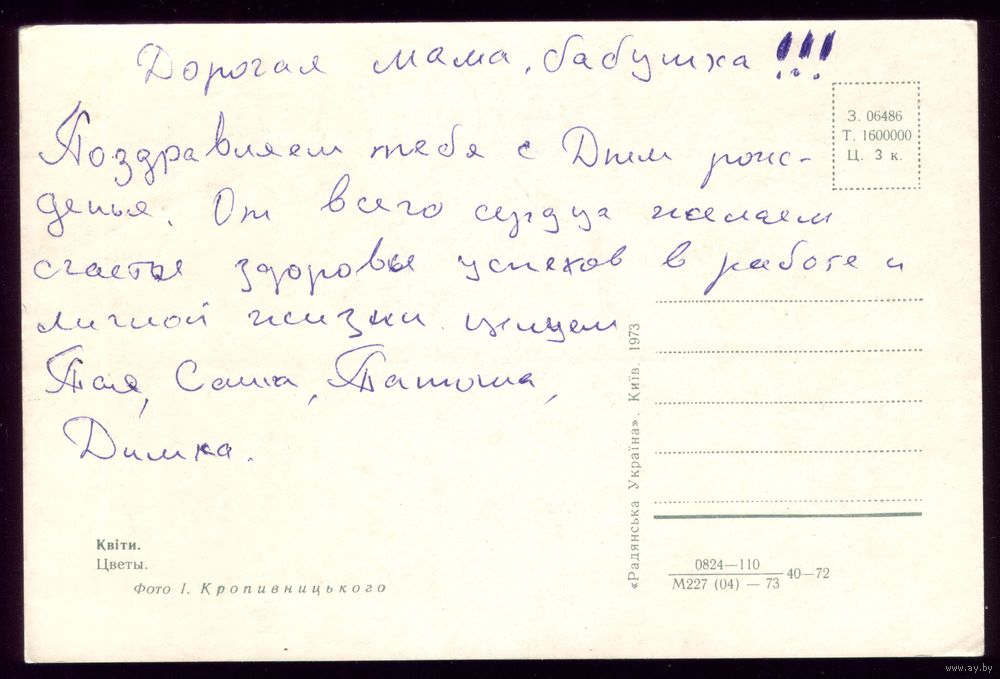 Дорогая мама, бабушка!!!
Поздравляем тебя с Днем рож-
денья. От всего сердца желаем
счастья здоровья успехов в работе и
личной жизни. целуем
Тая, Саша, Татоша,
Димка.
З. 06486
Т. 1600000
Ц. 3 к.
«Радянська Україна». Київ. 1973
Квіти.
Цветы.
Фото І. Кропивницького
0824—110
М227 (04) — 73
40—72
www.ay.by